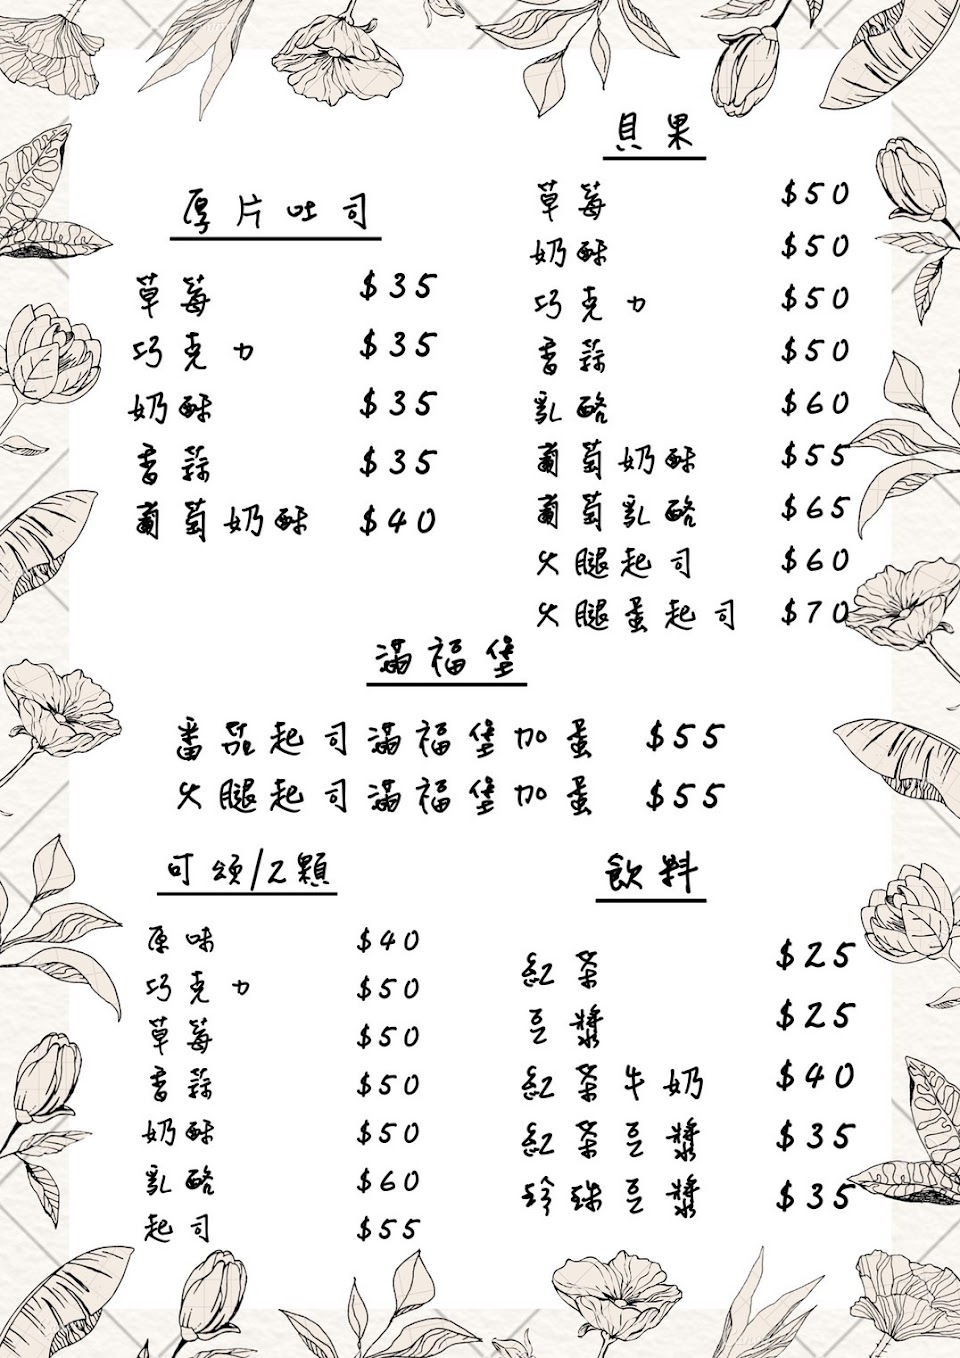 厚片吐司
草莓 $35
巧克力 $35
奶酥 $35
香蒜 $35
葡萄奶酥 $40
貝果
草莓 $50
奶酥 $50
巧克力 $50
香蒜 $50
乳酪 $60
葡萄奶酥 $55
葡萄乳酪 $65
火腿起司 $60
火腿蛋起司 $70
滿福堡
番茄起司滿福堡加蛋 $55
火腿起司滿福堡加蛋 $55
可頌/2顆
原味 $40
巧克力 $50
草莓 $50
香蒜 $50
奶酥 $50
乳酪 $60
起司 $55
飲料
紅茶 $25
豆漿 $25
紅茶牛奶 $40
紅茶豆漿 $35
珍珠豆漿 $35